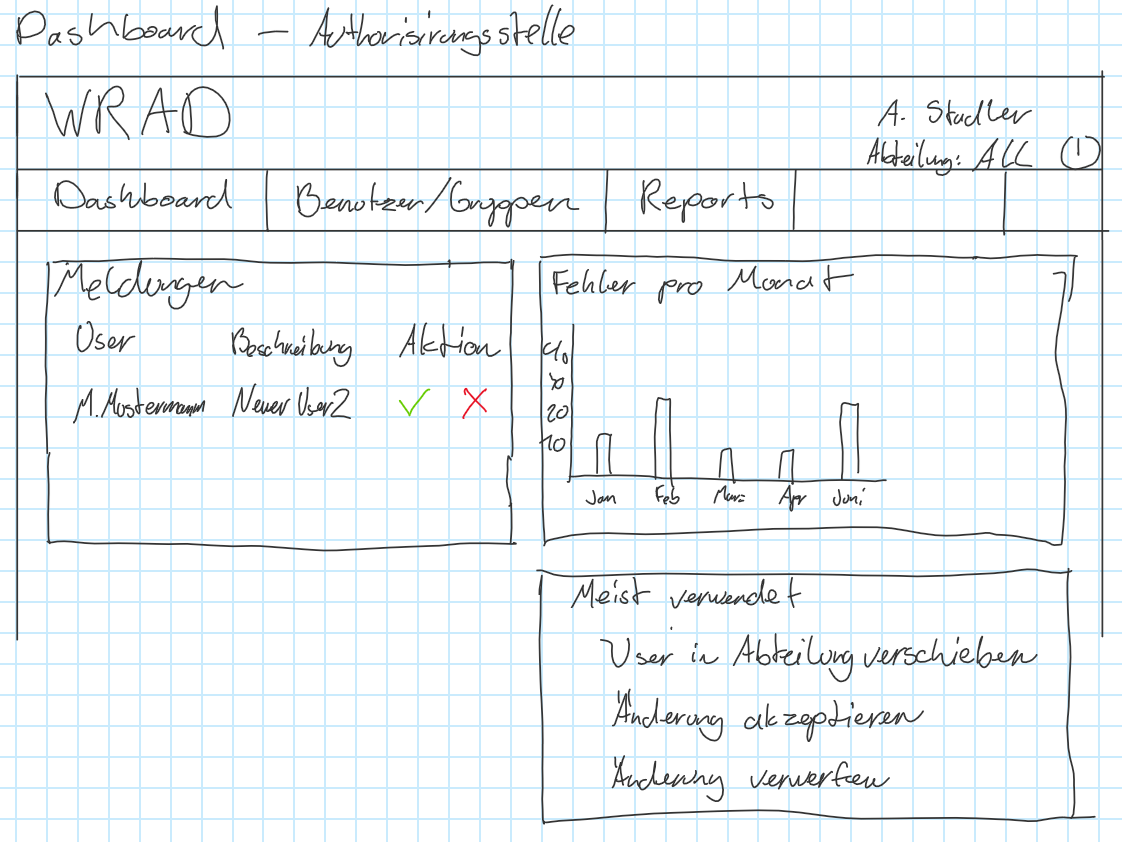 Dashboard — Authorisirungsstelle
WRAD
A. Stadler
Abteilung: ALL
Dashboard Benutzer/Gruppen Reports
Meldungen
User Beschreibung Aktion
M. Mustermann Neuer User2 ✓ X
Fehler pro Monat
40
30
20
10
Jan Feb März Apr Juni
Meist verwendet
User in Abteilung verschieben
Änderung akzeptieren
Änderung verwerfen